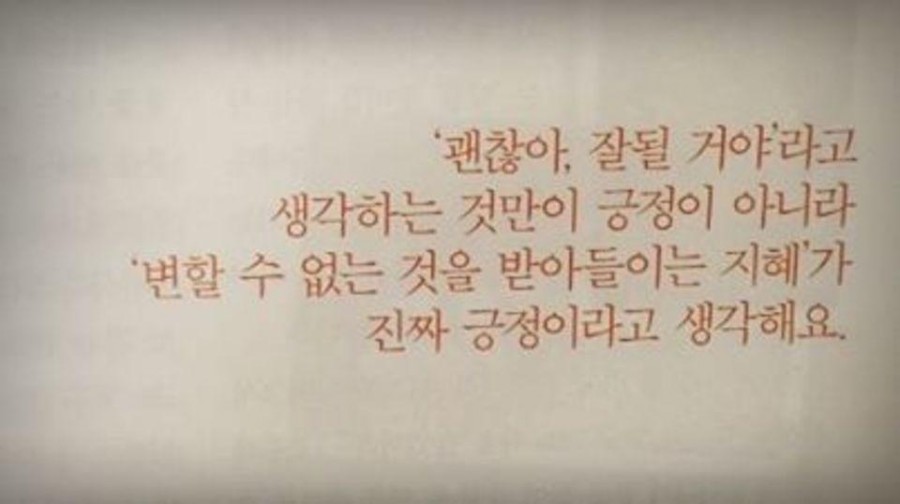 ‘괜찮아, 잘될 거야’라고
생각하는 것만이 긍정이 아니라
‘변할 수 없는 것을 받아들이는 지혜’가
진짜 긍정이라고 생각해요.